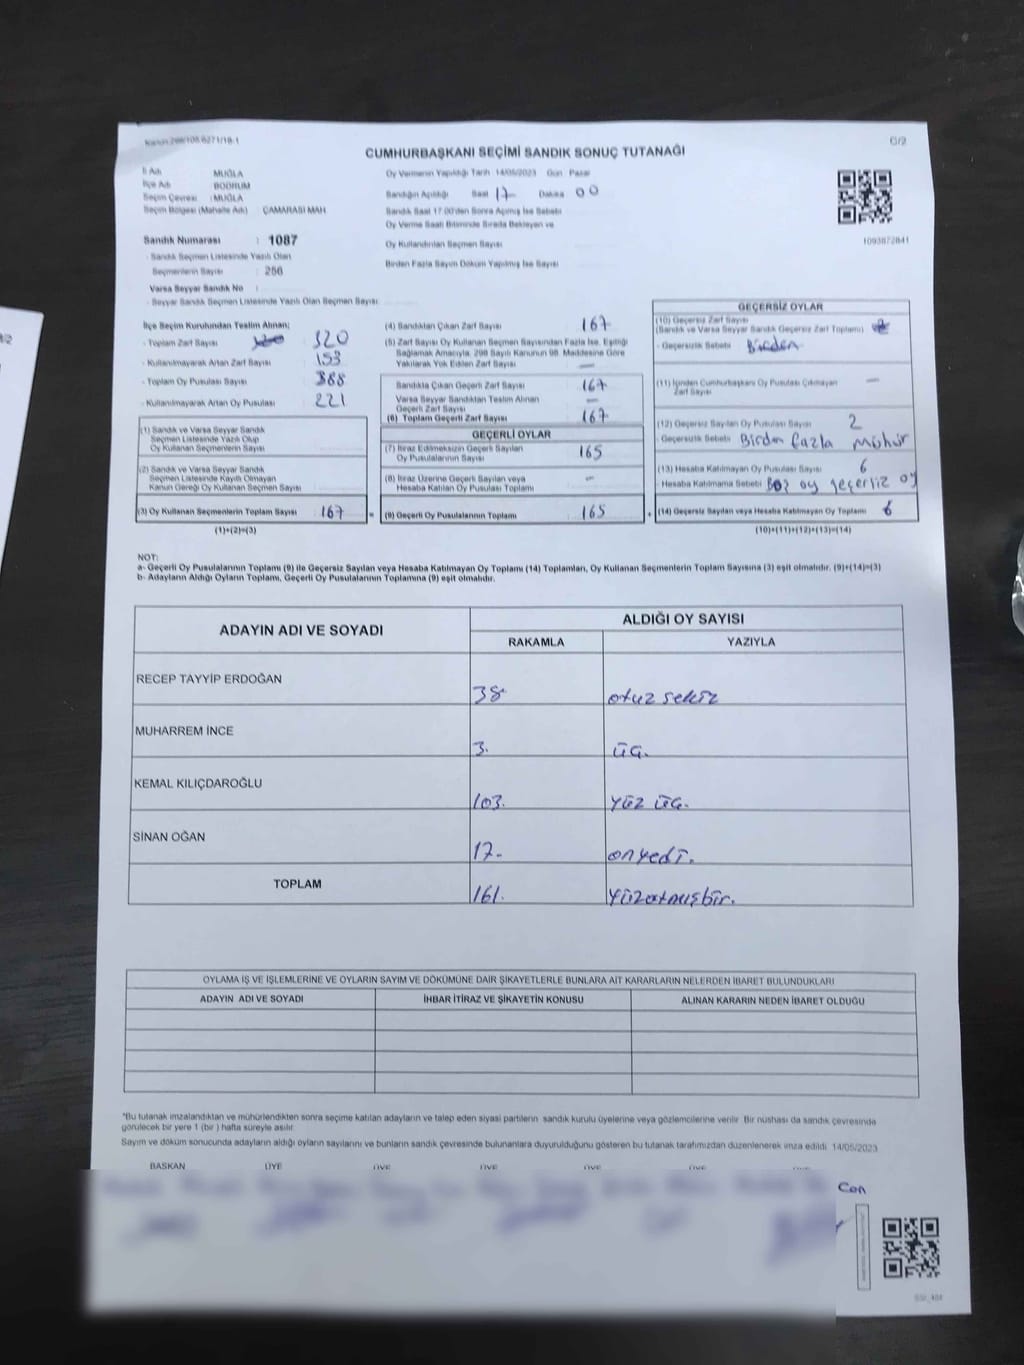 Kanun:298/105;6271/19-1
C/2
CUMHURBAŞKANI SEÇİMİ SANDIK SONUÇ TUTANAĞI
İl Adı : MUĞLA
İlçe Adı : BODRUM
Seçim Çevresi : MUĞLA
Seçim Bölgesi (Mahalle Adı) : ÇAMARASI MAH.
Oy Vermenin Yapıldığı Tarih 14/05/2023 Gün Pazar
Sandığın Açıldığı Saat 17 Dakika 00
Sandık Saat 17.00'den Sonra Açılmış İse Sebebi
Oy Verme Saati Bitiminde Sırada Bekleyen ve
Oy Kullandırılan Seçmen Sayısı
Birden Fazla Sayım Döküm Yapılmış İse Sayısı
1093872841
Sandık Numarası : 1087
- Sandık Seçmen Listesinde Yazılı Olan
Seçmenlerin Sayısı : 256
Varsa Seyyar Sandık No :
- Seyyar Sandık Seçmen Listesinde Yazılı Olan Seçmen Sayısı :
İlçe Seçim Kurulundan Teslim Alınan;
- Toplam Zarf Sayısı : 320
- Kullanılmayarak Artan Zarf Sayısı : 153
- Toplam Oy Pusulası Sayısı : 388
- Kullanılmayarak Artan Oy Pusulası : 221
(1) Sandık ve Varsa Seyyar Sandık
Seçmen Listesinde Yazılı Olup
Oy Kullanan Seçmenlerin Sayısı :
(2) Sandık ve Varsa Seyyar Sandık
Seçmen Listesinde Kayıtlı Olmayan
Kanun Gereği Oy Kullanan Seçmen Sayısı :
(3) Oy Kullanan Seçmenlerin Toplam Sayısı : 167 =
(1)+(2)=(3)
(4) Sandıktan Çıkan Zarf Sayısı : 167
(5) Zarf Sayısı Oy Kullanan Seçmen Sayısından Fazla İse, Eşitliği
Sağlamak Amacıyla, 298 Sayılı Kanunun 98. Maddesine Göre
Yakılarak Yok Edilen Zarf Sayısı : —
Sandıkta Çıkan Geçerli Zarf Sayısı : 167
Varsa Seyyar Sandıktan Teslim Alınan
Geçerli Zarf Sayısı : —
(6) Toplam Geçerli Zarf Sayısı : 167
GEÇERLİ OYLAR
(7) İtiraz Edilmeksizin Geçerli Sayılan
Oy Pusulalarının Sayısı : 165
(8) İtiraz Üzerine Geçerli Sayılan veya
Hesaba Katılan Oy Pusulası Toplamı : -
(9) Geçerli Oy Pusulalarının Toplamı : 165 +
GEÇERSİZ OYLAR
(10) Geçersiz Zarf Sayısı
(Sandık ve Varsa Seyyar Sandık Geçersiz Zarf Toplamı) :
- Geçersizlik Sebebi : Birden
(11) İçinden Cumhurbaşkanı Oy Pusulası Çıkmayan
Zarf Sayısı : —
(12) Geçersiz Sayılan Oy Pusulası Sayısı : 2
- Geçersizlik Sebebi : Birden fazla mühür
(13) Hesaba Katılmayan Oy Pusulası Sayısı : 6
- Hesaba Katılmama Sebebi : Boş oy geçersiz oy
(14) Geçersiz Sayılan veya Hesaba Katılmayan Oy Toplamı : 6
(10)+(11)+(12)+(13)=(14)
NOT:
a- Geçerli Oy Pusulalarının Toplamı (9) ile Geçersiz Sayılan veya Hesaba Katılmayan Oy Toplamı (14) Toplamları, Oy Kullanan Seçmenlerin Toplam Sayısına (3) eşit olmalıdır. (9)+(14)=(3)
b- Adayların Aldığı Oyların Toplamı, Geçerli Oy Pusulalarının Toplamına (9) eşit olmalıdır.
ADAYIN ADI VE SOYADI
ALDIĞI OY SAYISI
RAKAMLA YAZIYLA
RECEP TAYYİP ERDOĞAN 38 otuz sekiz
MUHARREM İNCE 3. üç.
KEMAL KILIÇDAROĞLU 103. yüz üç.
SİNAN OĞAN 17- onyedi.
TOPLAM 161. yüzatmışbir.
OYLAMA İŞ VE İŞLEMLERİNE VE OYLARIN SAYIM VE DÖKÜMÜNE DAİR ŞİKAYETLERLE BUNLARA AİT KARARLARIN NELERDEN İBARET BULUNDUKLARI
ADAYIN ADI VE SOYADI İHBAR İTİRAZ VE ŞİKAYETİN KONUSU ALINAN KARARIN NEDEN İBARET OLDUĞU
*Bu tutanak imzalandıktan ve mühürlendikten sonra seçime katılan adayların ve talep eden siyasi partilerin sandık kurulu üyelerine veya gözlemcilerine verilir. Bir nüshası da sandık çevresinde
görülecek bir yere 1 (bir ) hafta süreyle asılır.
Sayım ve döküm sonucunda adayların aldığı oyların sayılarını ve bunların sandık çevresinde bulunanlara duyurulduğunu gösteren bu tutanak tarafımızdan düzenlenerek imza edildi. 14/05/2023
BAŞKAN ÜYE ÜYE ÜYE ÜYE ÜYE
Can